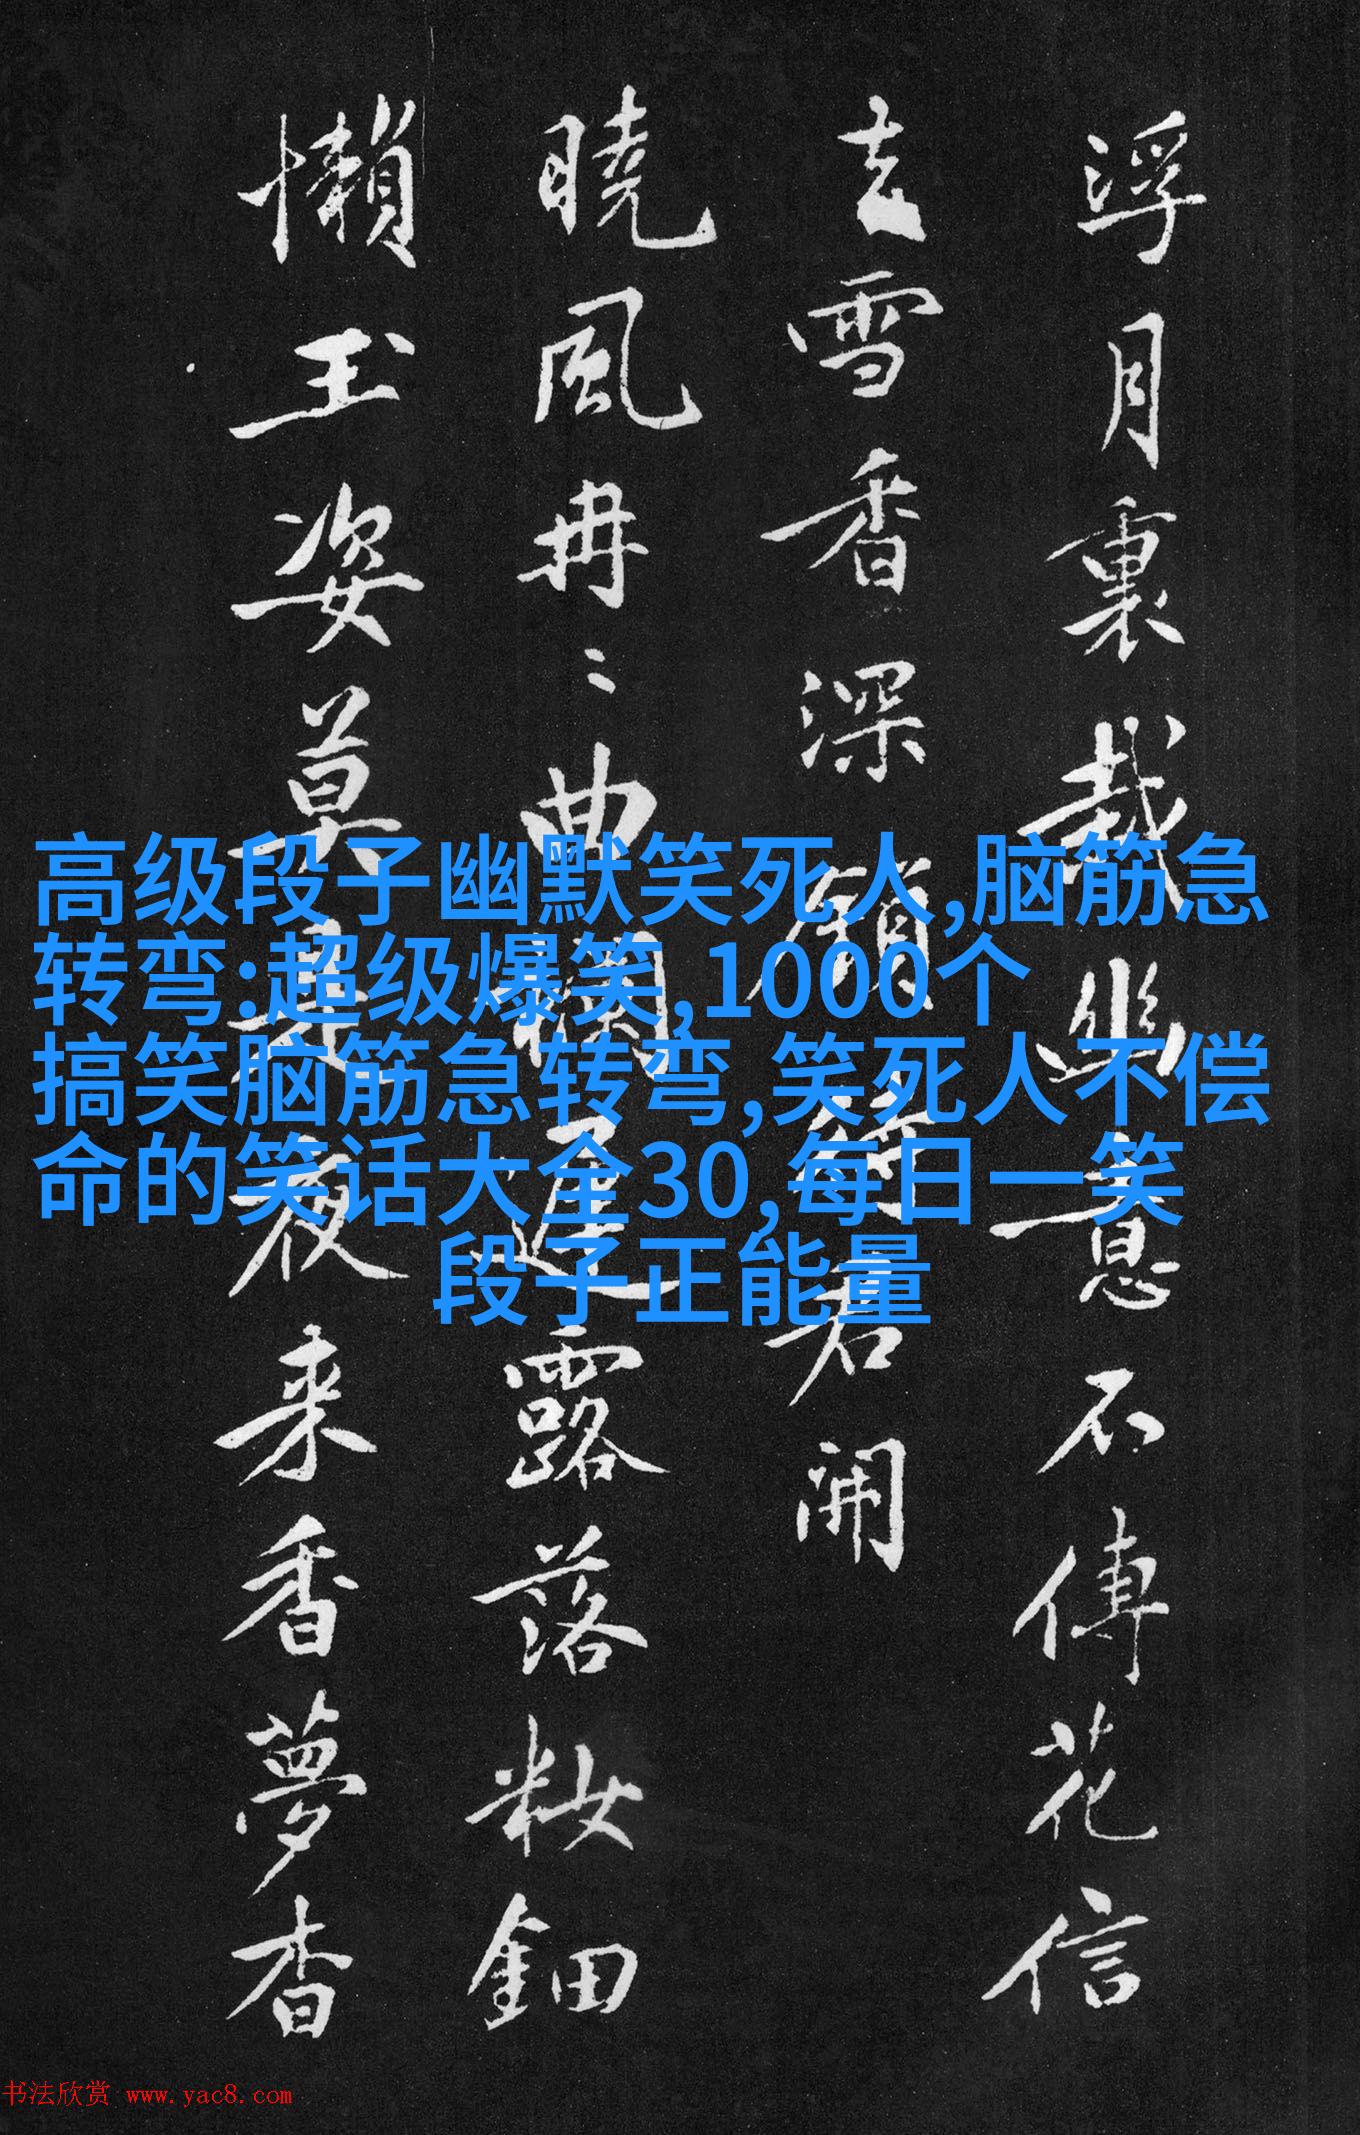 浮月裏栽幽意不傳花信
去雪香深鎖待君開
曉風冉〻曲欄遲露落籹鈿
懶玉姿莫是夜来香夢杳
高级段子幽默笑死人,脑筋急
转弯:超级爆笑,1000个
搞笑脑筋急转弯,笑死人不偿
命的笑话大全30,每日一笑
段子正能量
书法欣赏 www.yac8.com